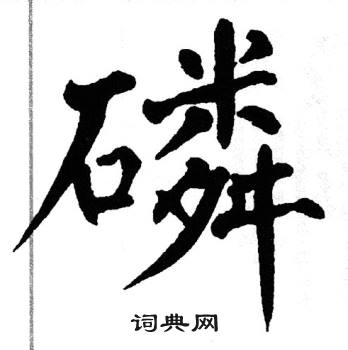 磷
词典网